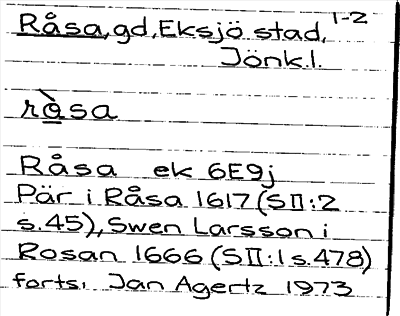 Råsa, gd, Eksjö stad, 1-2
Jönk.l.
ràsa
Råsa ek 6E9j
Pär i Råsa 1617 (SII:2
s.45), Swen Larsson i
Rosan 1666 (SII:1 s.478)
forts. Jan Agertz 1973